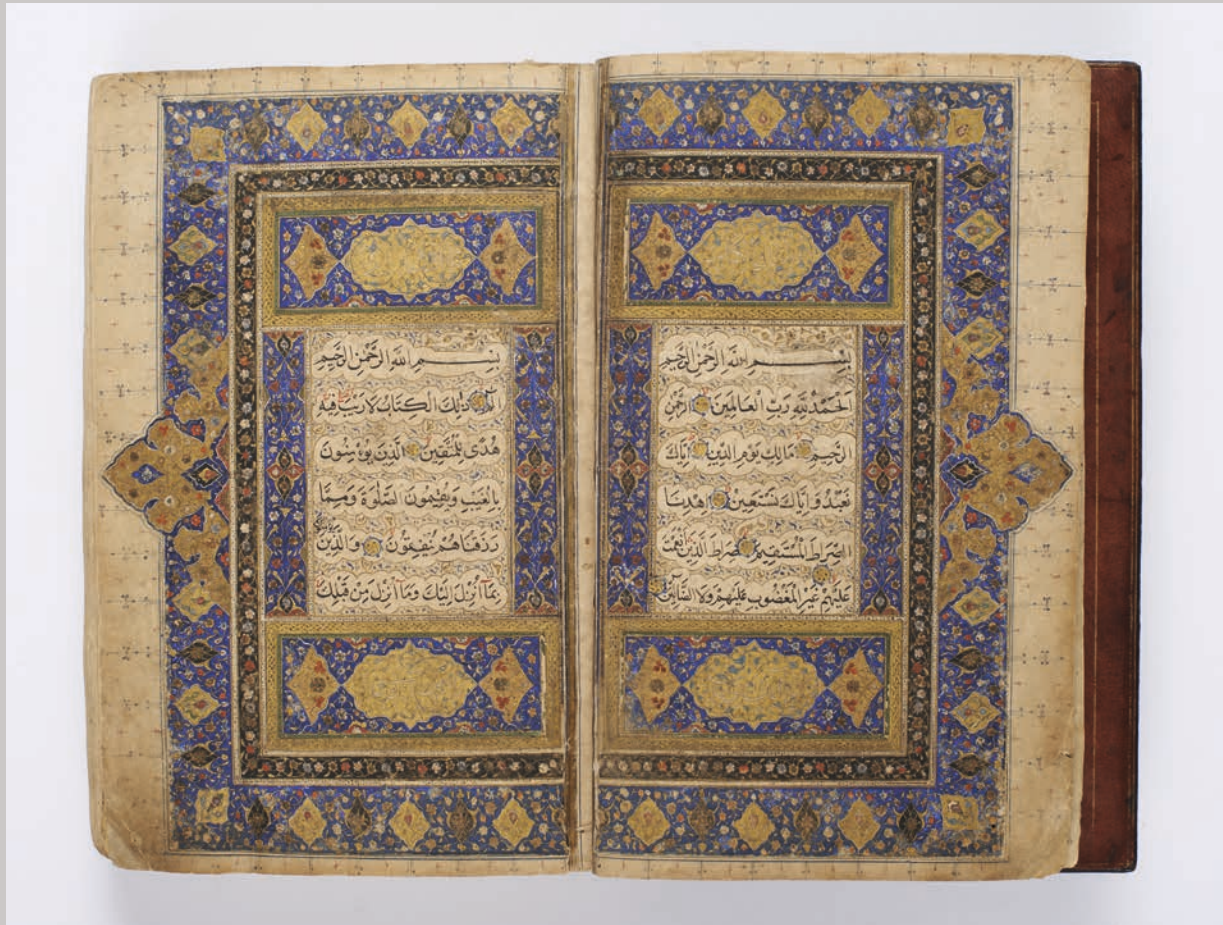 بِسْمِ اللَّهِ الرَّحْمَٰنِ الرَّحِيمِ
الْحَمْدُ لِلَّهِ رَبِّ الْعَالَمِينَ الرَّحْمٰنِ
الرَّحِيمِ مَالِكِ يَوْمِ الدِّينِ إِيَّاكَ
نَعْبُدُ وَإِيَّاكَ نَسْتَعِينُ اهْدِنَا
الصِّرَاطَ الْمُسْتَقِيمَ صِرَاطَ الَّذِينَ أَنْعَمْتَ
عَلَيْهِمْ غَيْرِ الْمَغْضُوبِ عَلَيْهِمْ وَلَا الضَّالِّينَ
بِسْمِ اللَّهِ الرَّحْمٰنِ الرَّحِيمِ
الم ذَٰلِكَ الْكِتَابُ لَا رَيْبَ فِيهِ
هُدًى لِلْمُتَّقِينَ الَّذِينَ يُؤْمِنُونَ
بِالْغَيْبِ وَيُقِيمُونَ الصَّلٰوةَ وَمِمَّا
رَزَقْنَاهُمْ يُنْفِقُونَ وَالَّذِينَ
بِمَا أُنْزِلَ إِلَيْكَ وَمَا أُنْزِلَ مِنْ قَبْلِكَ